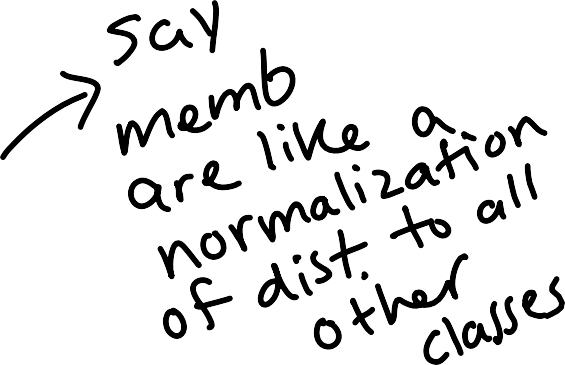 say
memb
are like a
normalization
of dist. to all
other
classes